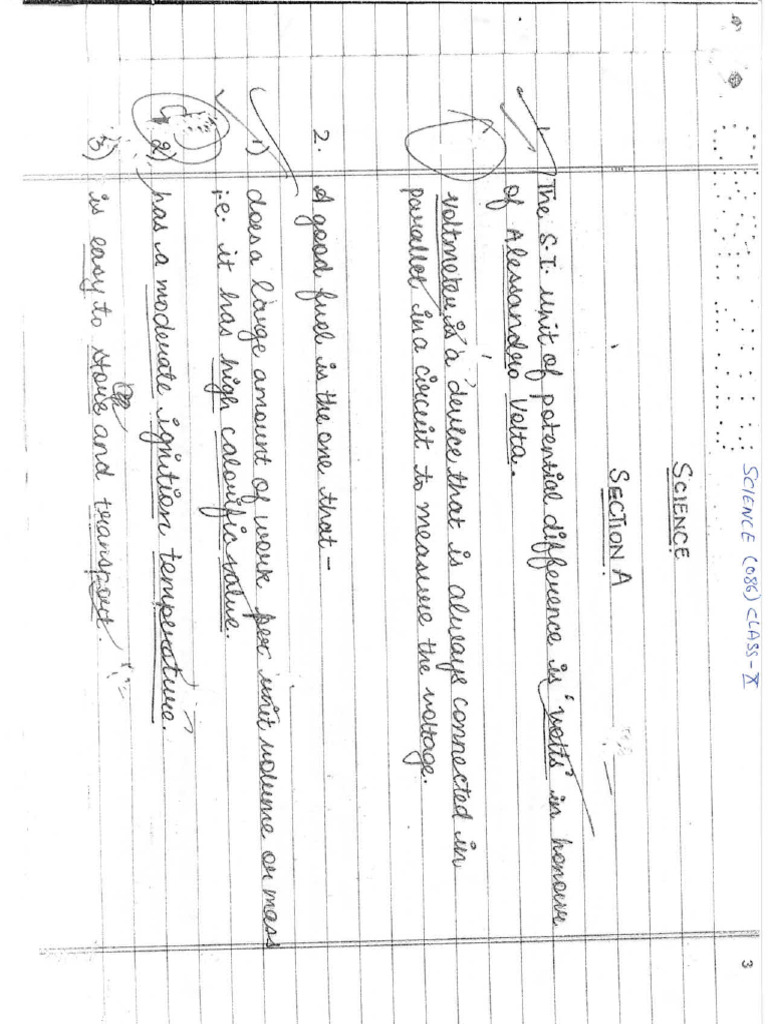 SCIENCE (086) CLASS-X
3
SCIENCE
SECTION A
1. The S.I. unit of potential difference is 'volts' in honour
of Alessandro Volta.
voltmeter is a device that is always connected in
parallel in a circuit to measure the voltage.
2. A good fuel is the one that -
1) does a large amount of work per unit volume or mass
i.e. it has high calorific value.
2) has a moderate ignition temperature.
3) is easy to store and transport